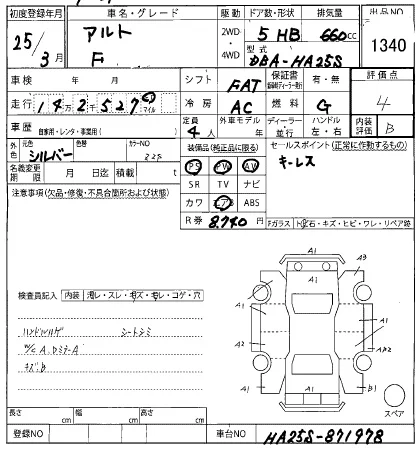 初度登録年月 車名・グレード 駆動 ドア数・形状 排気量 出品NO
25/3月 アルト F 2WD・4WD 5 HB 660cc 1340
型式 DBA-HA25S
車検 年 月 シフト FAT 保証書 有・無 評価点 4
走行 14万2千527 km マイル 冷房 AC 燃料 G
車歴 自家用・レンタ・事業用( ) 定員 4人 外車モデル 年 ディーラー・並行 ハンドル 左・右 内装評価 B
外色 元色 シルバー 色替 カラーNO
装備品(純正品に限る) セールスポイント(正常に作動するもの)
名義変更期限 月 日迄 積載 t PS PW AW キーレス
注意事項(欠品・修復・不具合箇所および状態) SR TV ナビ
カワ エアB ABS
R券 8,740円 Fガラス 飛石・キズ・ヒビ・ワレ・リペア跡
A1
A1 A3
検査員記入 内装 汚レ・スレ・キズ・モレ・コゲ・穴
A1 A1
ハンドルハゲ シートシミ
A2
キズ.b
A2 B1
A1
スペア
長さ cm 幅 cm 高さ cm
登録NO 車台NO HA25S-871978